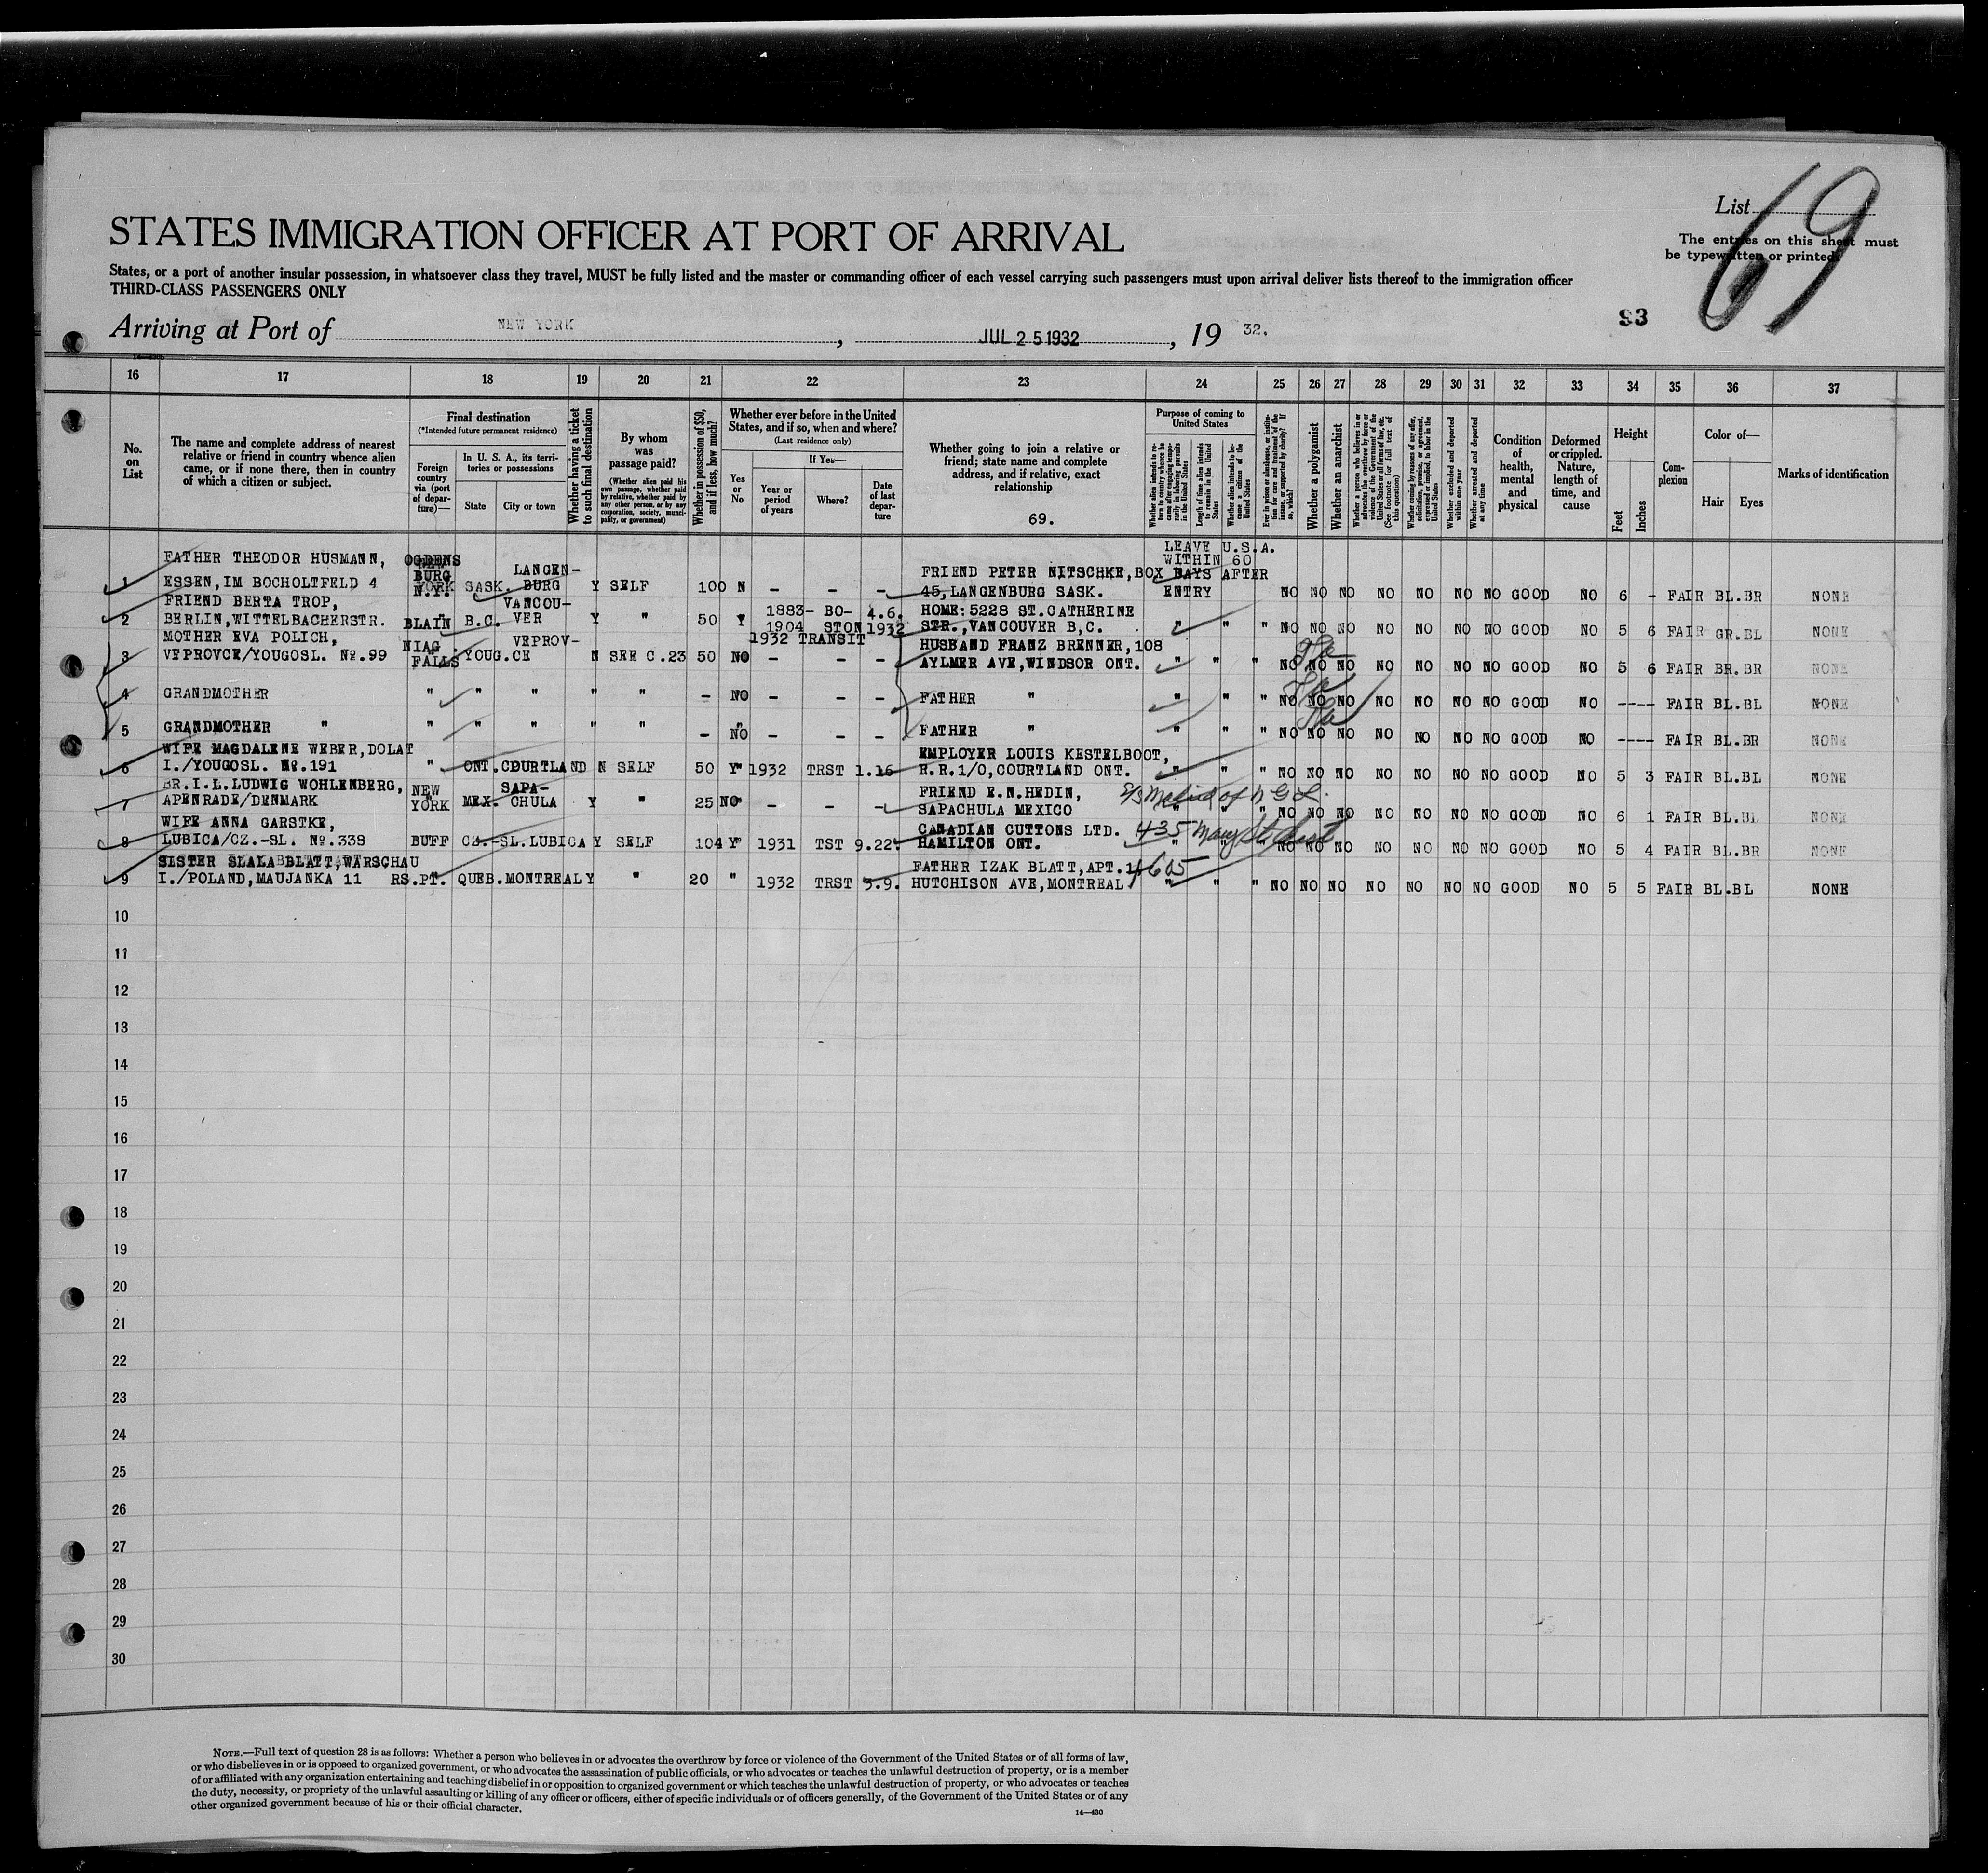 List
69
The entries on this sheet must
be typewritten or printed
STATES IMMIGRATION OFFICER AT PORT OF ARRIVAL
States, or a port of another insular possession, in whatsoever class they travel, MUST be fully listed and the master or commanding officer of each vessel carrying such passengers must upon arrival deliver lists thereof to the immigration officer
THIRD-CLASS PASSENGERS ONLY
93
Arriving at Port of NEW YORK, JUL 25 1932, 19 32.
16 17 18 19 20 21 22 23 24 25 26 27 28 29 30 31 32 33 34 35 36 37
No. on List
The name and complete address of nearest relative or friend in country whence alien came, or if none there, then in country of which a citizen or subject.
Final destination
(*Intended future permanent residence)
Foreign country via (port of departure)—
In U. S. A., its territories or possessions
State
City or town
Whether having a ticket to such final destination
By whom was passage paid?
(Whether alien paid his own passage, whether paid by relative, whether paid by any other person, or by any corporation, society, municipality, or government)
Whether in possession of $50, and if less, how much?
Whether ever before in the United States, and if so, when and where?
(Last residence only)
Yes or No
If Yes—
Year or period of years
Where?
Date of last departure
Whether going to join a relative or friend; state name and complete address, and if relative, exact relationship
69.
Purpose of coming to United States
Whether alien intends to return to country whence he came after engaging temporarily in laboring pursuits in the United States
Length of time alien intends to remain in the United States
Whether alien intends to become a citizen of the United States
Ever in prison or almshouse, or institution for care and treatment of the insane, or supported by charity? If so, which?
Whether a polygamist
Whether an anarchist
Whether a person who believes in or advocates the overthrow by force or violence of the Government of the United States or all forms of law, etc. (See footnote for full text of this question)
Whether coming by reasons of any offer, solicitation, promise, or agreement, expressed or implied, to labor in the United States
Whether excluded and deported within one year
Whether arrested and deported at any time
Condition of health, mental and physical
Deformed or crippled. Nature, length of time, and cause
Height
Feet
Inches
Complexion
Color of—
Hair
Eyes
Marks of identification
LEAVE U.S.A.
FATHER THEODOR HUSMANN, OGDENS LANGEN- WITHIN 60
BURG FRIEND PETER NITSCHKE, BOX DAYS AFTER
1 ESSEN, IM BOCHOLTFELD 4 N.Y. SASK. BURG Y SELF 100 N - - - 45, LANGENBURG SASK. ENTRY NO NO NO NO NO NO NO GOOD NO 6 - FAIR BL.BR NONE
FRIEND BERTA TROP, VANCOU- 1883- BO- 4.6. HOME: 5228 ST.CATHERINE
2 BERLIN, WITTELBACHERSTR. BLAIN B.C. VER Y " 50 Y 1904 STON 1932 STR., VANCOUVER B,C. " " " NO NO NO NO NO NO NO GOOD NO 5 6 FAIR GR.BL NONE
MOTHER EVA POLICH, NIAG VEPROV- 1932 TRANSIT HUSBAND FRANZ BRENNER, 108
3 VEPROVCE/YOUGOSL. No.99 FALLS YOUG. CE N SEE C.23 50 NO - - - AYLMER AVE, WINDSOR ONT. " " " NO NO NO NO NO NO NO GOOD NO 5 6 FAIR BR.BR NONE
4 GRANDMOTHER " " " " " - NO - - - FATHER " " " " NO NO NO NO NO NO NO GOOD NO ---- FAIR BL.BL NONE
5 GRANDMOTHER " " " " " " - NO - - - FATHER " " " " NO NO NO NO NO NO NO GOOD NO ---- FAIR BL.BR NONE
WIFE MAGDALENE WEBER, DOLAT EMPLOYER LOUIS KESTELBOOT,
6 I./YOUGOSL. No.191 " ONT. COURTLAND N SELF 50 Y 1932 TRST 1.16 R.R.1/O, COURTLAND ONT. " " " NO NO NO NO NO NO NO GOOD NO 5 3 FAIR BL.BL NONE
BR.I.L. LUDWIG WOHLENBERG, NEW SAPA- FRIEND E.N.HEDIN,
7 APENRADE/DENMARK YORK MEX. CHULA Y " 25 NO - - - SAPACHULA MEXICO " " " NO NO NO NO NO NO NO GOOD NO 6 1 FAIR BL.BL NONE
WIFE ANNA GARSTKE, CANADIAN CUTTONS LTD. 435 Mary St
8 LUBICA/CZ.-SL. No.338 BUFF CZ.-SL. LUBICA Y SELF 104 Y 1931 TST 9.22. HAMILTON ONT. " " NO NO NO NO NO NO NO GOOD NO 5 4 FAIR BL.BR NONE
SISTER SLALA BLATT, WARSCHAU FATHER IZAK BLATT, APT. 1, 4605
9 I./POLAND, MAUJANKA 11 RS.PT. QUEB. MONTREAL Y " 20 " 1932 TRST 3.9. HUTCHISON AVE, MONTREAL " " " NO NO NO NO NO NO NO GOOD NO 5 5 FAIR BL.BL NONE
10
11
12
13
14
15
16
17
18
19
20
21
22
23
24
25
26
27
28
29
30
NOTE.—Full text of question 28 is as follows: Whether a person who believes in or advocates the overthrow by force or violence of the Government of the United States or of all forms of law,
or who disbelieves in or is opposed to organized government, or who advocates the assassination of public officials, or who advocates or teaches the unlawful destruction of property, or is a member
of or affiliated with any organization entertaining and teaching disbelief in or opposition to organized government or which teaches the unlawful destruction of property, or who advocates or teaches
the duty, necessity, or propriety of the unlawful assaulting or killing of any officer or officers, either of specific individuals or of officers generally, of the Government of the United States or of any
other organized government because of his or their official character.
14—430